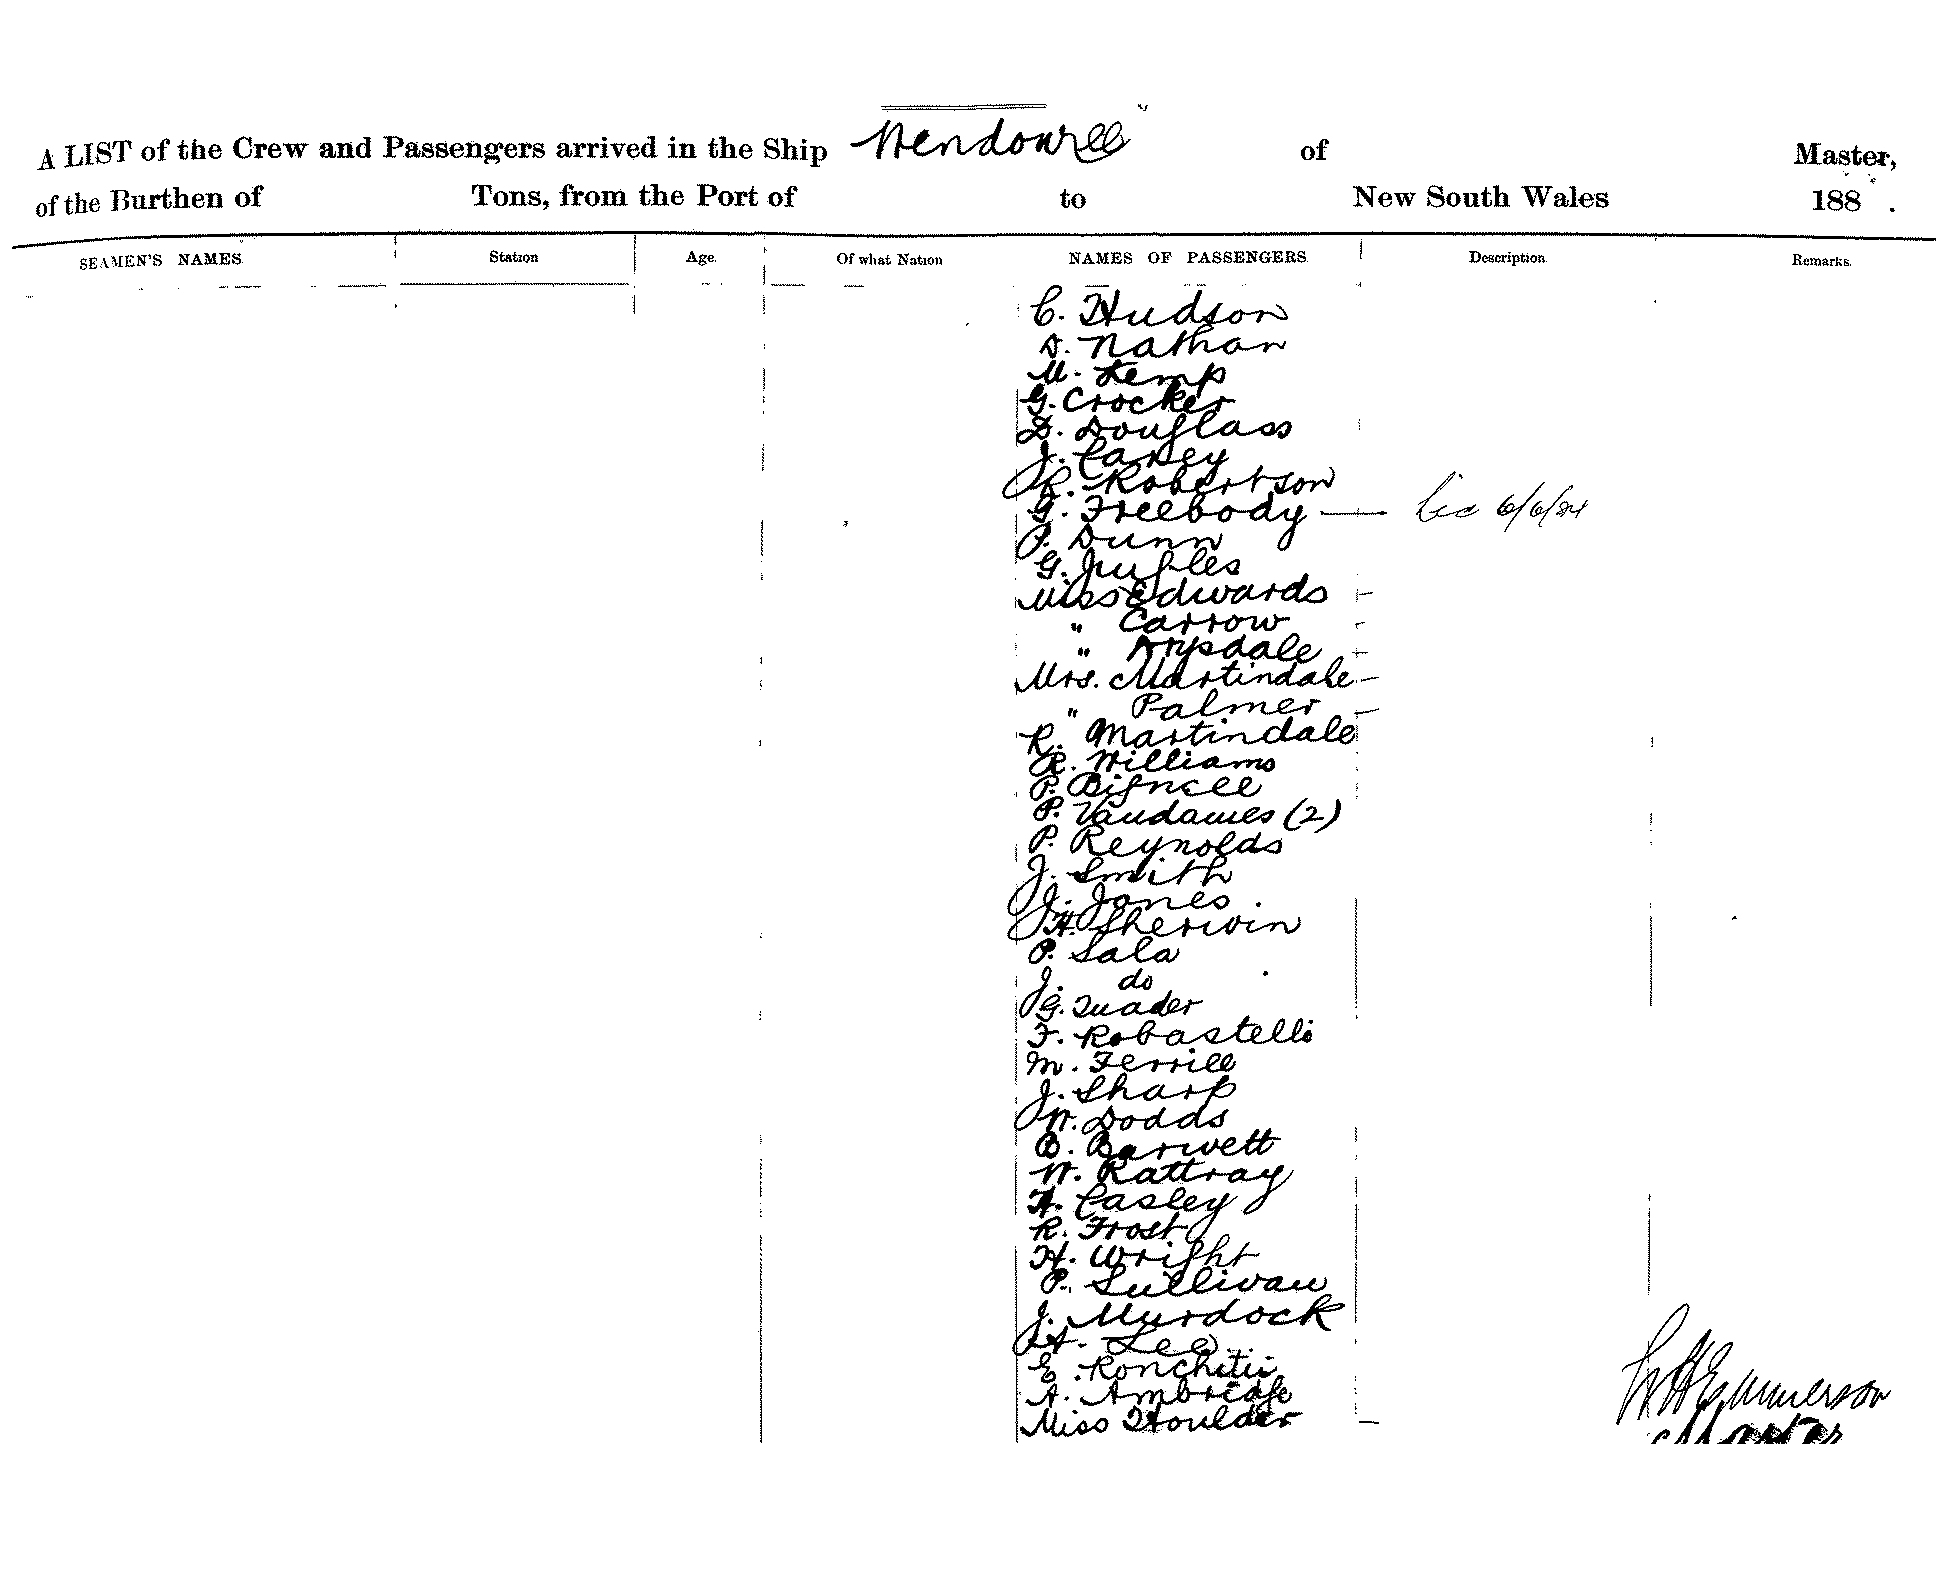 A LIST of the Crew and Passengers arrived in the Ship Wendouree of Master,
of the Burthen of Tons, from the Port of to New South Wales 188 .
SEAMEN'S NAMES Station Age. Of what Nation NAMES OF PASSENGERS Description Remarks.
C. Hudson
D. Nathan
M. Kemp
G. Crocker
D. Douglass
J. Carey
R. Robertson
G. Freebody — 6/6/84
P. Dunn
G.
Miss Edwards
" Carrow
"
Mrs. Martindale
" Palmer
R. Martindale
R. Williams
P. Bignell
P. Vandames (2)
P. Reynolds
J. Smith
J. Jones
H. Sherwin
P. Sala
J. do
G.
F. Robastelli
M. Ferrill
J. Sharp
W. Dodds
B. Barwett
W. Rattray
H. Casley
R. Frost
H. Wright
P. Sullivan
J. Murdock
A. Lee
E. Ronchitii
A. Ambridge
Miss Houlder
Emmerson
Master